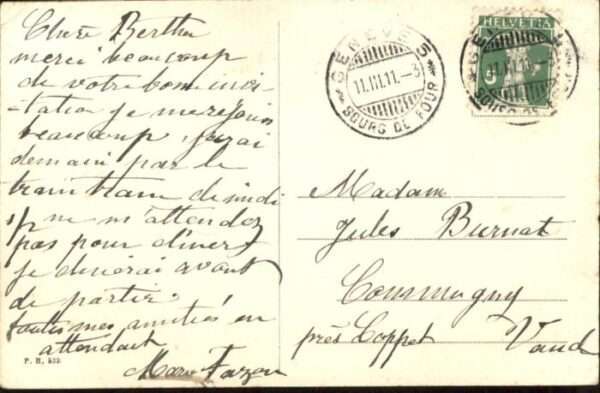 Chère Berthe
merci beaucoup
de votre bonne invi-
-tation je me réjouis
beaucoup, j'irai
demain par le
train de midi
je ne m'attendez
pas pour dîner
je dinerai avant
de partir
toutes mes amitiés en
attendant
Marie
P. H. 533
GENÈVE
11.III.11.-3
BOURG DE FOUR
HELVETIA
5
GENÈVE
11.III.11.-3
BOURG DE FOUR
Madame
Jules Burnat
Commugny
près Coppet
Vaud